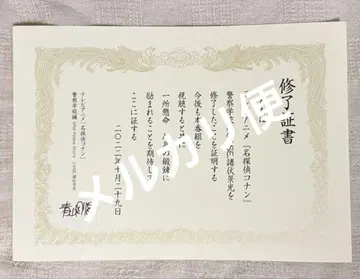 修了証書
アニメ「名探偵コナン」
警察学校 諸伏景光を
修了したことを証明する
今後も本番組を
視聴すると共に
一所懸命 の鍛錬に
励まれることを期待して
ここに証する
二〇二二年十月二十九日
テレビアニメ「名探偵コナン」
警察学校編 Wild Police Story CASE.諸伏景光
メルカリ便